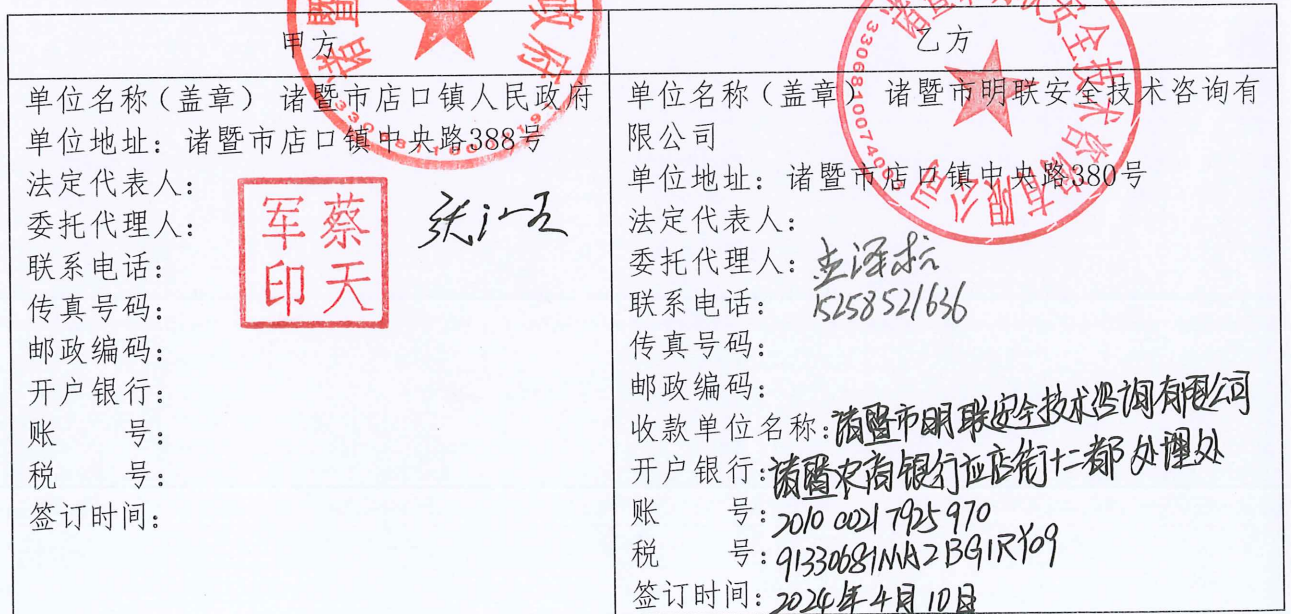 甲方
单位名称（盖章） 诸暨市店口镇人民政府
单位地址：诸暨市店口镇中央路388号
法定代表人：
委托代理人：
联系电话：
传真号码：
邮政编码：
开户银行：
账 号：
税 号：
签订时间：
蔡天
军印
乙方
单位名称（盖章） 诸暨市明联安全技术咨询有
限公司
单位地址：诸暨市店口镇中央路380号
法定代表人：
委托代理人：
联系电话：15258521636
传真号码：
邮政编码：
收款单位名称：诸暨市明联安全技术咨询有限公司
开户银行：诸暨农商银行应店街十二都分理处
账 号：201000217925970
税 号：91330681MA2BG1RY09
签订时间：2024年4月10日
3306810074001